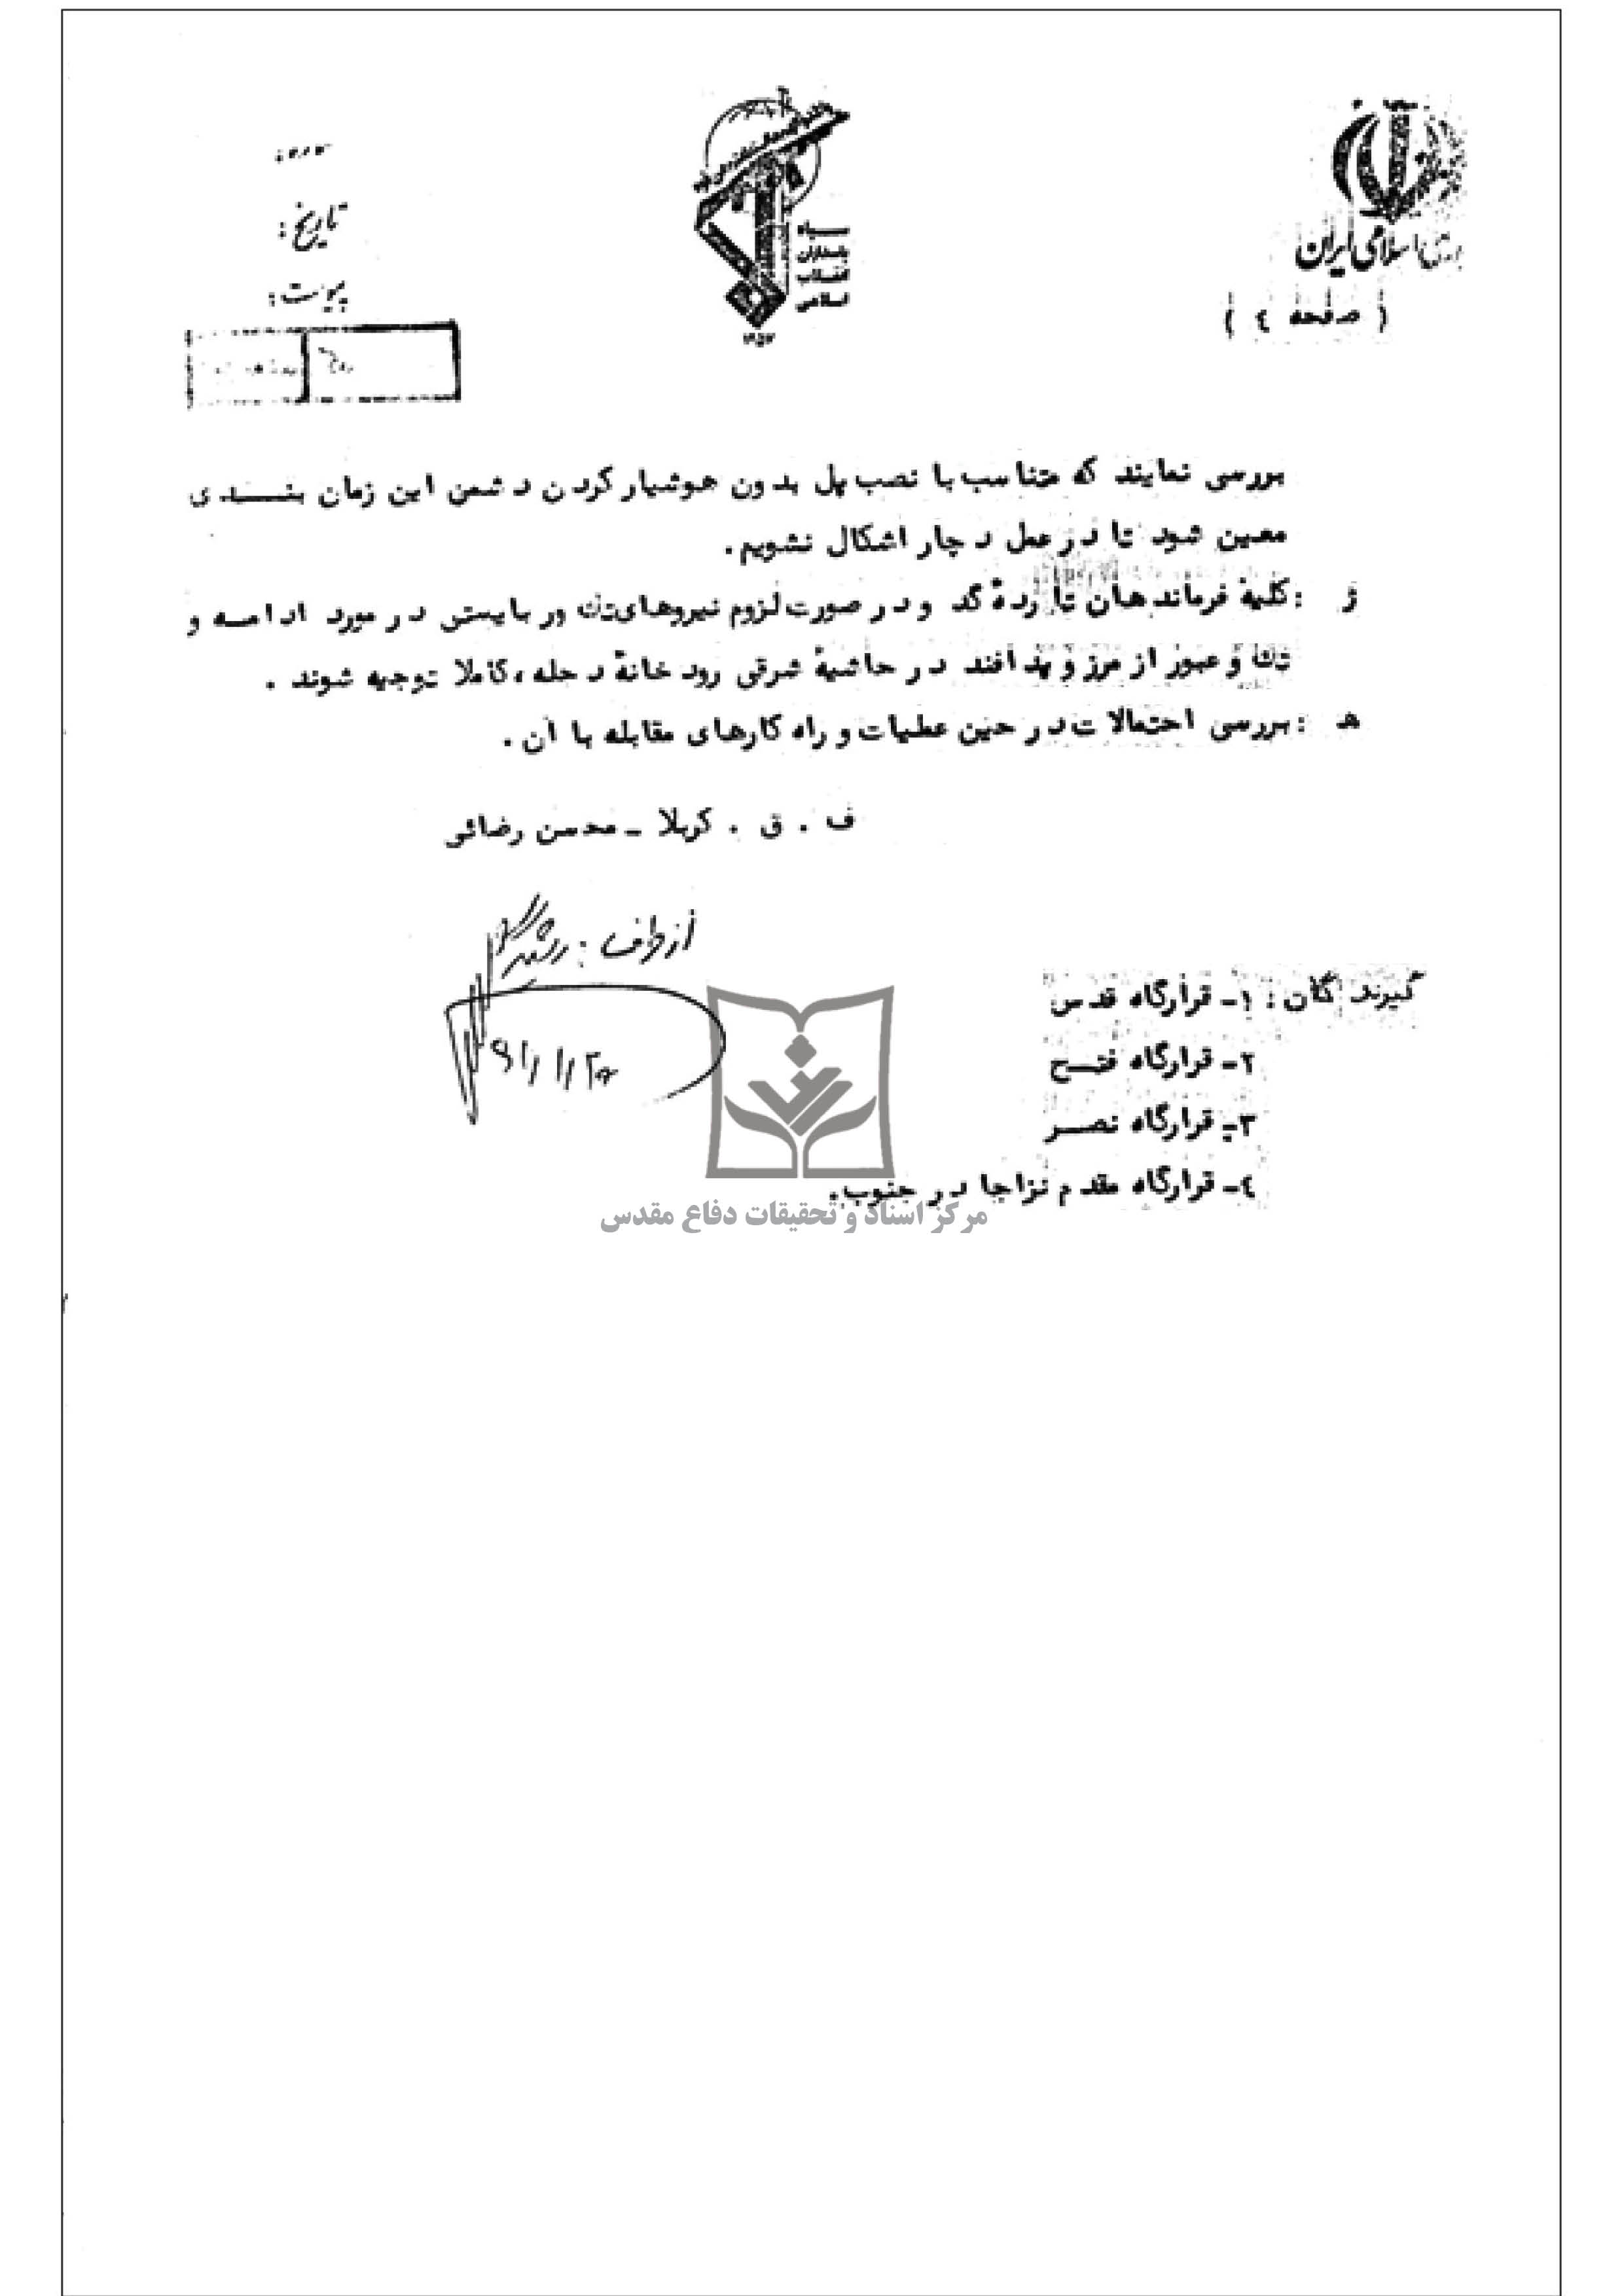 جمهوری اسلامی ایران
( صفحه ٤ )
سپاه
پاسداران
انقلاب
اسلامی
۱۳۵۷
شماره:
تاریخ:
پیوست:
بررسی نمایند که متناسب با نصب پل بدون هوشیار کردن دشمن این زمان بندی
معین شود تا در عمل دچار اشکال نشویم.
ز : کلیهٔ فرماندهان تا ردهٔ گد و در صورت لزوم نیروهای تک ور بایستی در مورد ادامه و
تک و عبور از مرز و پدافند در حاشیهٔ شرقی رودخانهٔ دجله، کاملا توجیه شوند .
هـ : بررسی احتمالات در حین عملیات و راه کارهای مقابله با آن .
ف . ق . کربلا ـ محسن رضائی
از طرف : رشید
۶۱/۱/۳۰
گیرندگان : ۱ـ قرارگاه قدس
۲ـ قرارگاه فتح
۳ـ قرارگاه نصر
٤ـ قرارگاه مقدم نزاجا در جنوب.
مرکز اسناد و تحقیقات دفاع مقدس